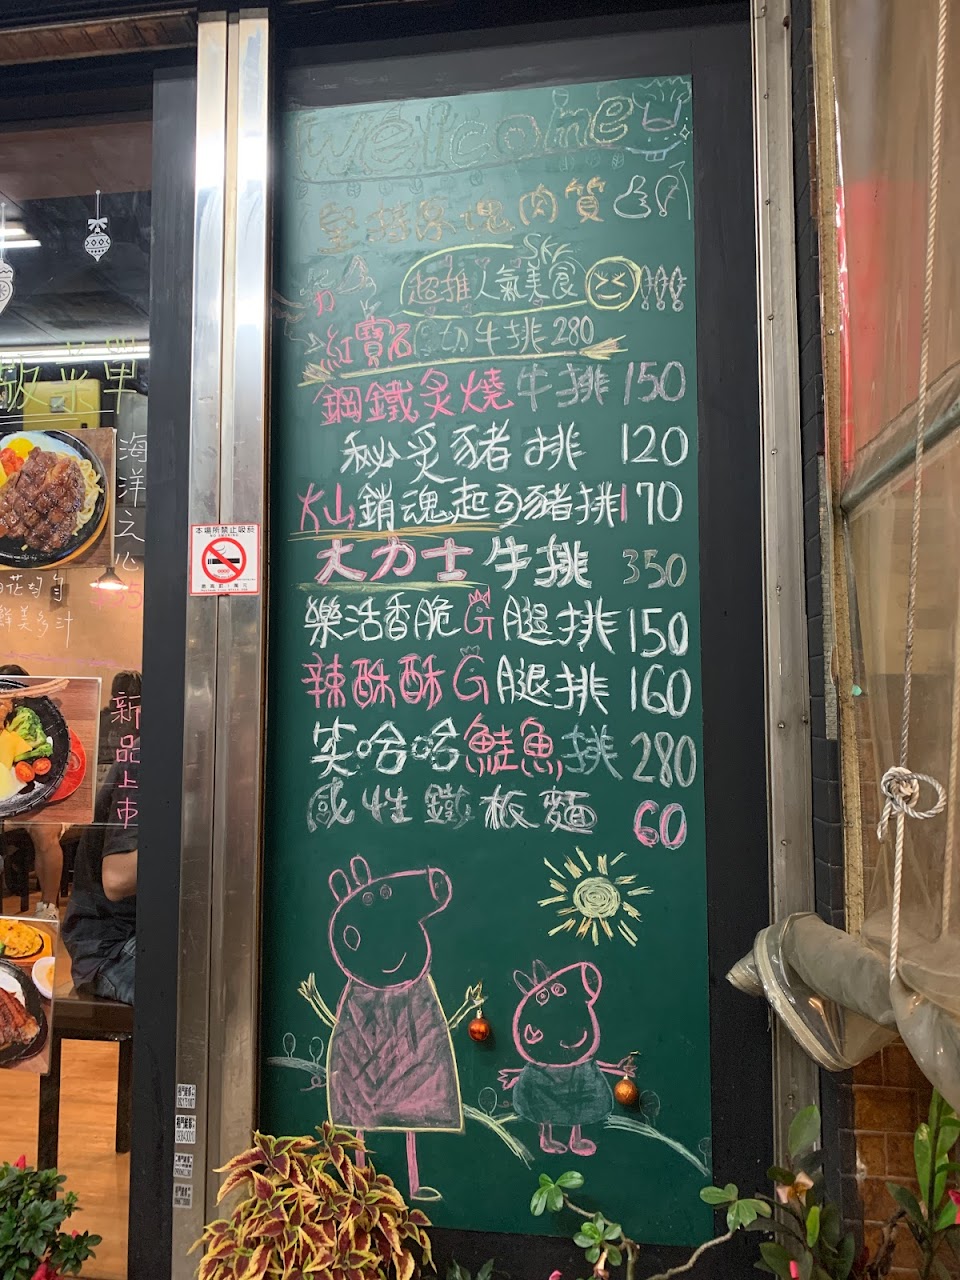 welcome
堅持原塊肉質
SKr
超推人氣美食
紅寶石 切牛排 280
鋼鐵炙燒牛排 150
秘炙豬排 120
火山銷魂起司豬排 170
大力士牛排 350
樂活香脆G腿排 150
辣酥酥G腿排 160
笑哈哈鮭魚排 280
感性鐵板麵 60
本場所禁止吸菸
NO SMOKING
板菜單
海洋之心
鮮美多汁
新品上市